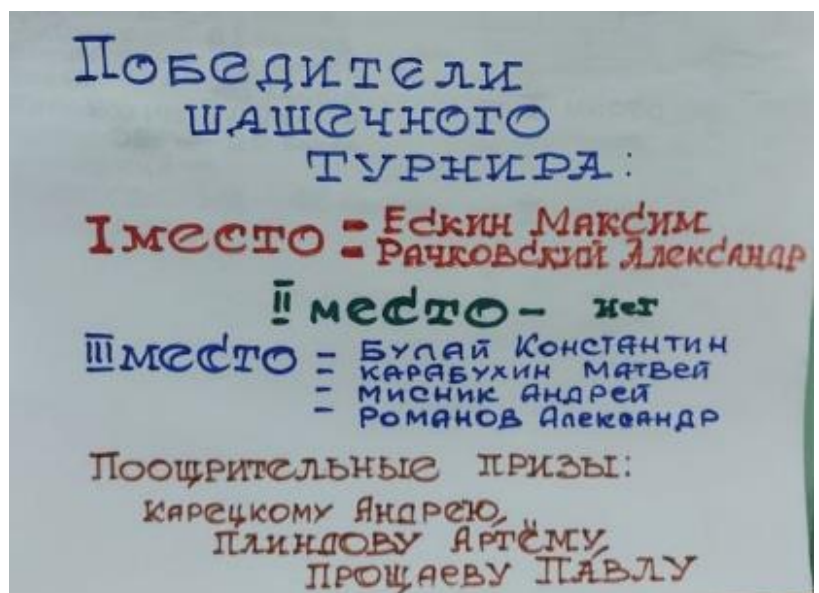 Победители
шашечного
турнира:
I место - Ескин Максим
- Рачковский Александр
II место - нет
III место - Булай Константин
- Карабухин Матвей
- Мисник Андрей
- Романов Александр
Поощрительные призы:
Карецкому Андрею,
Плиндову Артёму,
Прощаеву Павлу